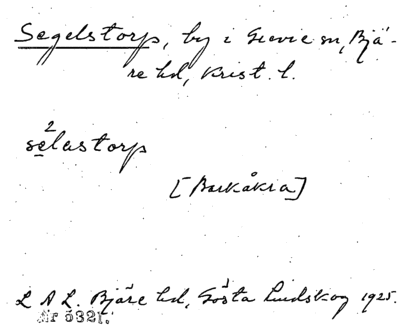 Segelstorp, by i Grevie sn, Bjä-
re hd, Krist. l.
se²lastorp
[Barkåkra]
L A L. Bjäre hd, Gösta Lindskog 1925.
Nr 5321.